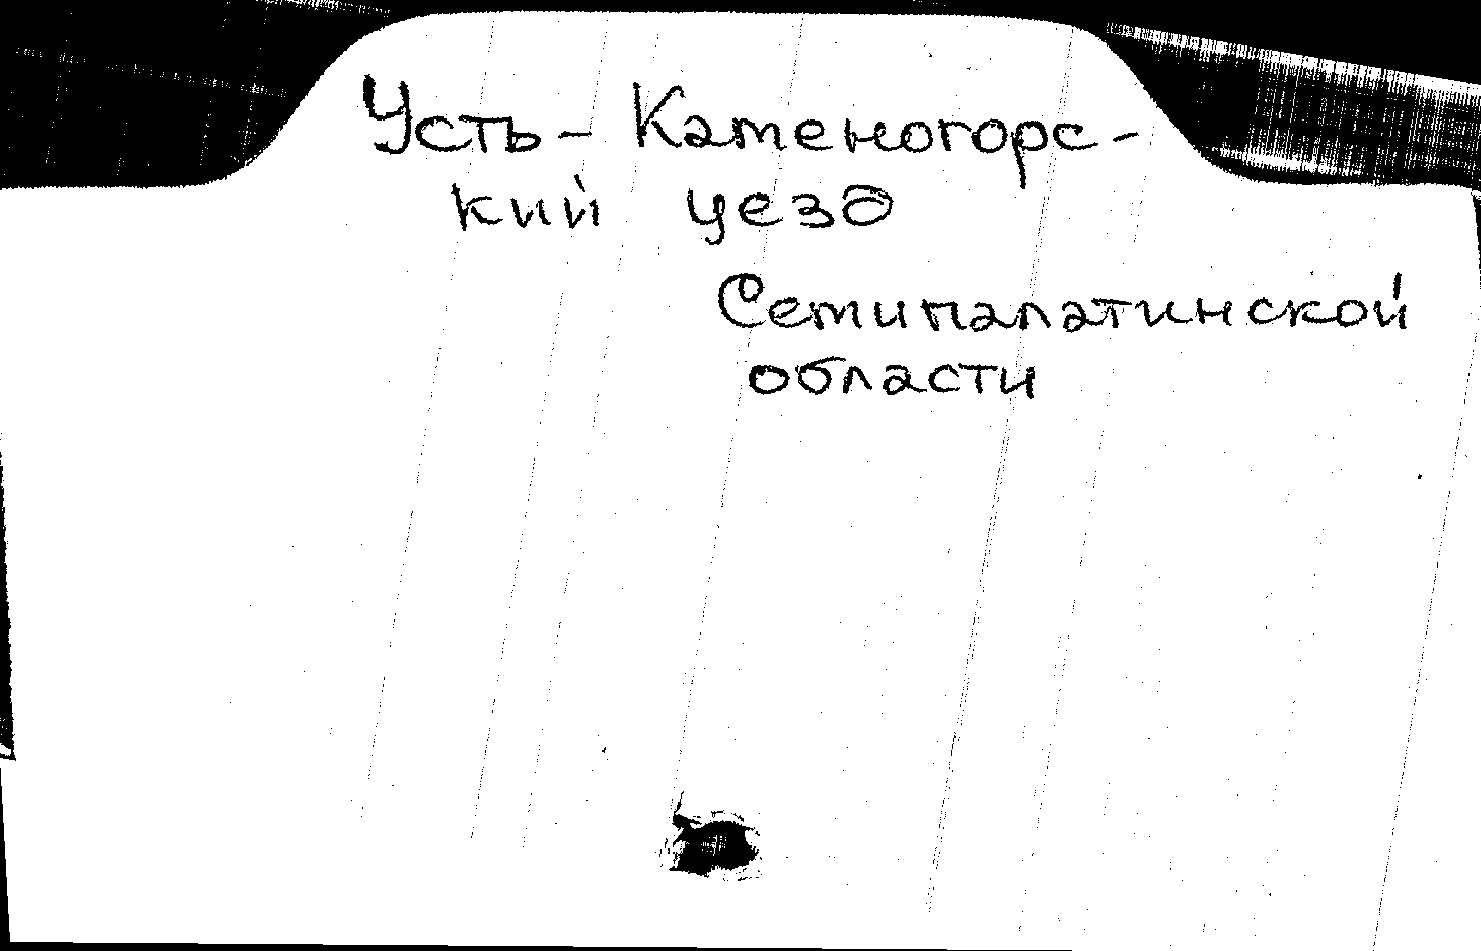 Усть-Каменогорс-
кий уезд
Семипалатинской
области